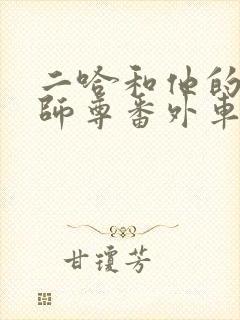 二哈和他的
师尊番外车
甘琼芳